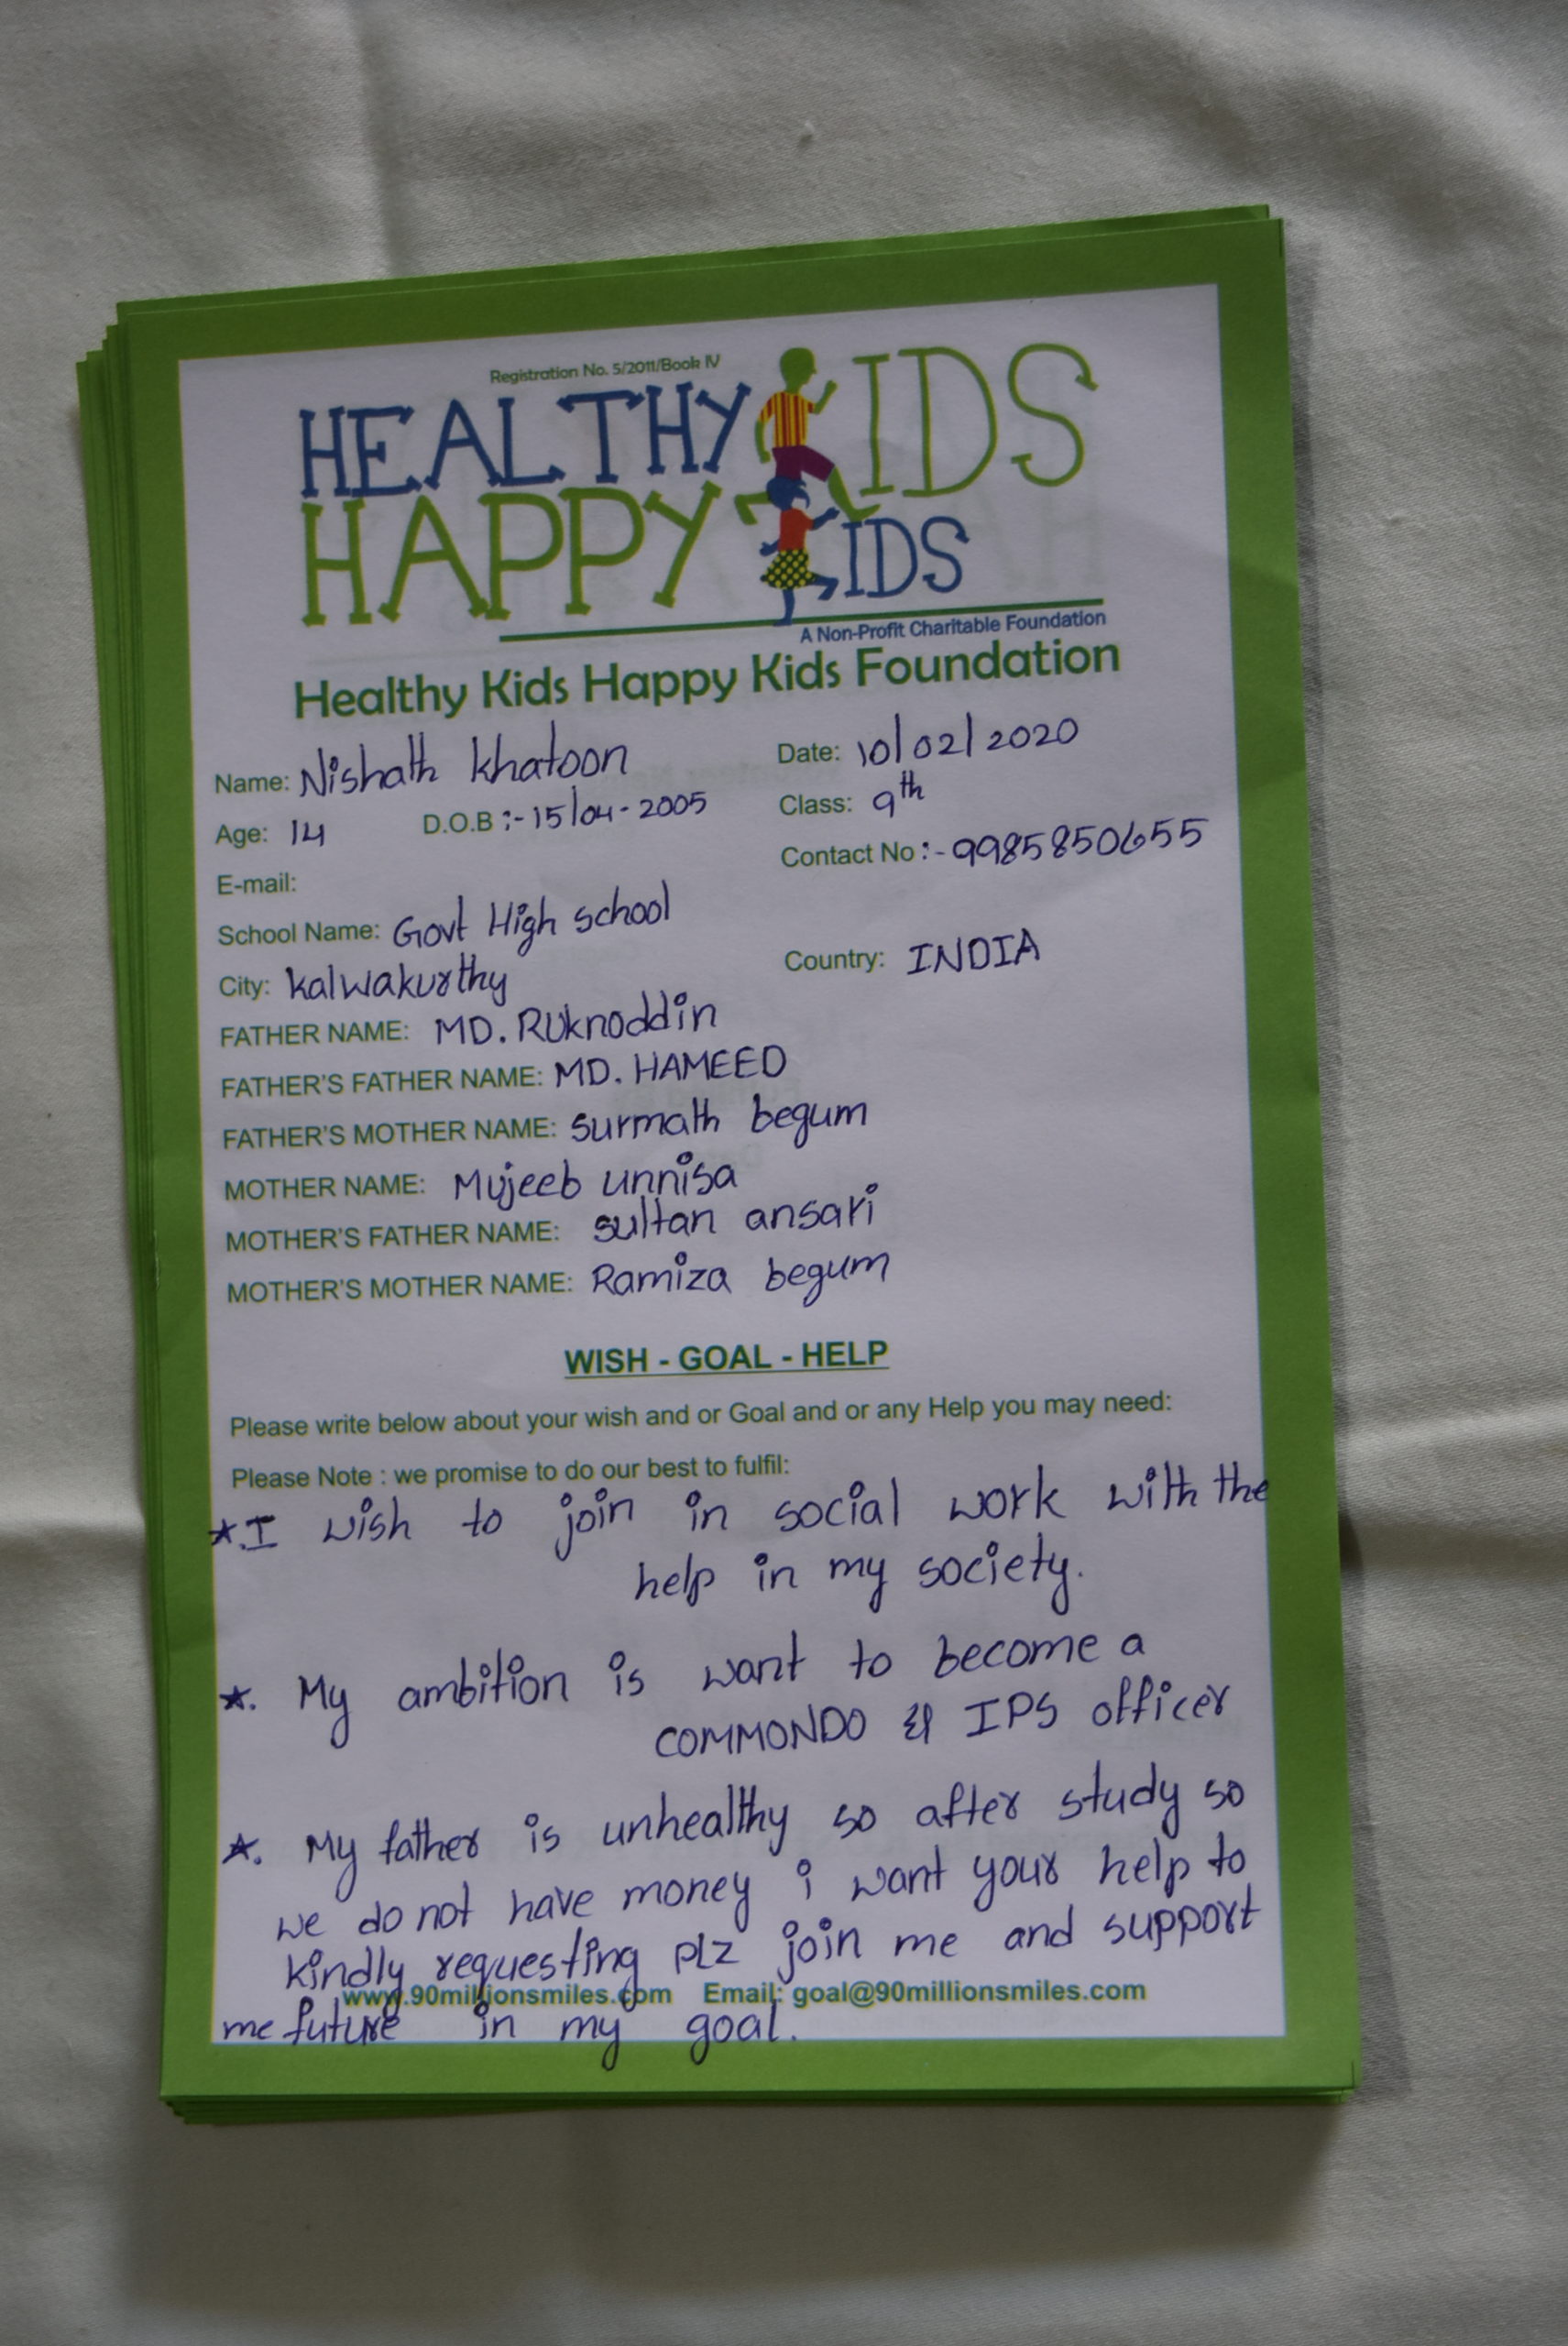 Registration No. 5/2011/Book IV
HEALTHY KIDS
HAPPY KIDS
A Non-Profit Charitable Foundation
Healthy Kids Happy Kids Foundation
Name: Nishath khatoon Date: 10/02/2020
Age: 14 D.O.B :- 15/04-2005 Class: 9th
E-mail: Contact No :- 9985850655
School Name: Govt High school
City: kalwakurthy Country: INDIA
FATHER NAME: MD. RUknoddin
FATHER'S FATHER NAME: MD. HAMEED
FATHER'S MOTHER NAME: surmath begum
MOTHER NAME: Mujeeb unnisa
MOTHER'S FATHER NAME: sultan ansari
MOTHER'S MOTHER NAME: Ramiza begum
WISH - GOAL - HELP
Please write below about your wish and or Goal and or any Help you may need:
Please Note : we promise to do our best to fulfil:
*.I wish to join in social work with the
help in my society.
*. My ambition is want to become a
COMMONDO & IPS officer
*. My father is unhealthy so after study so
we do not have money i want your help to
kindly requesting plz join me and support
www.90millionsmiles.com Email: goal@90millionsmiles.com
me future in my goal.